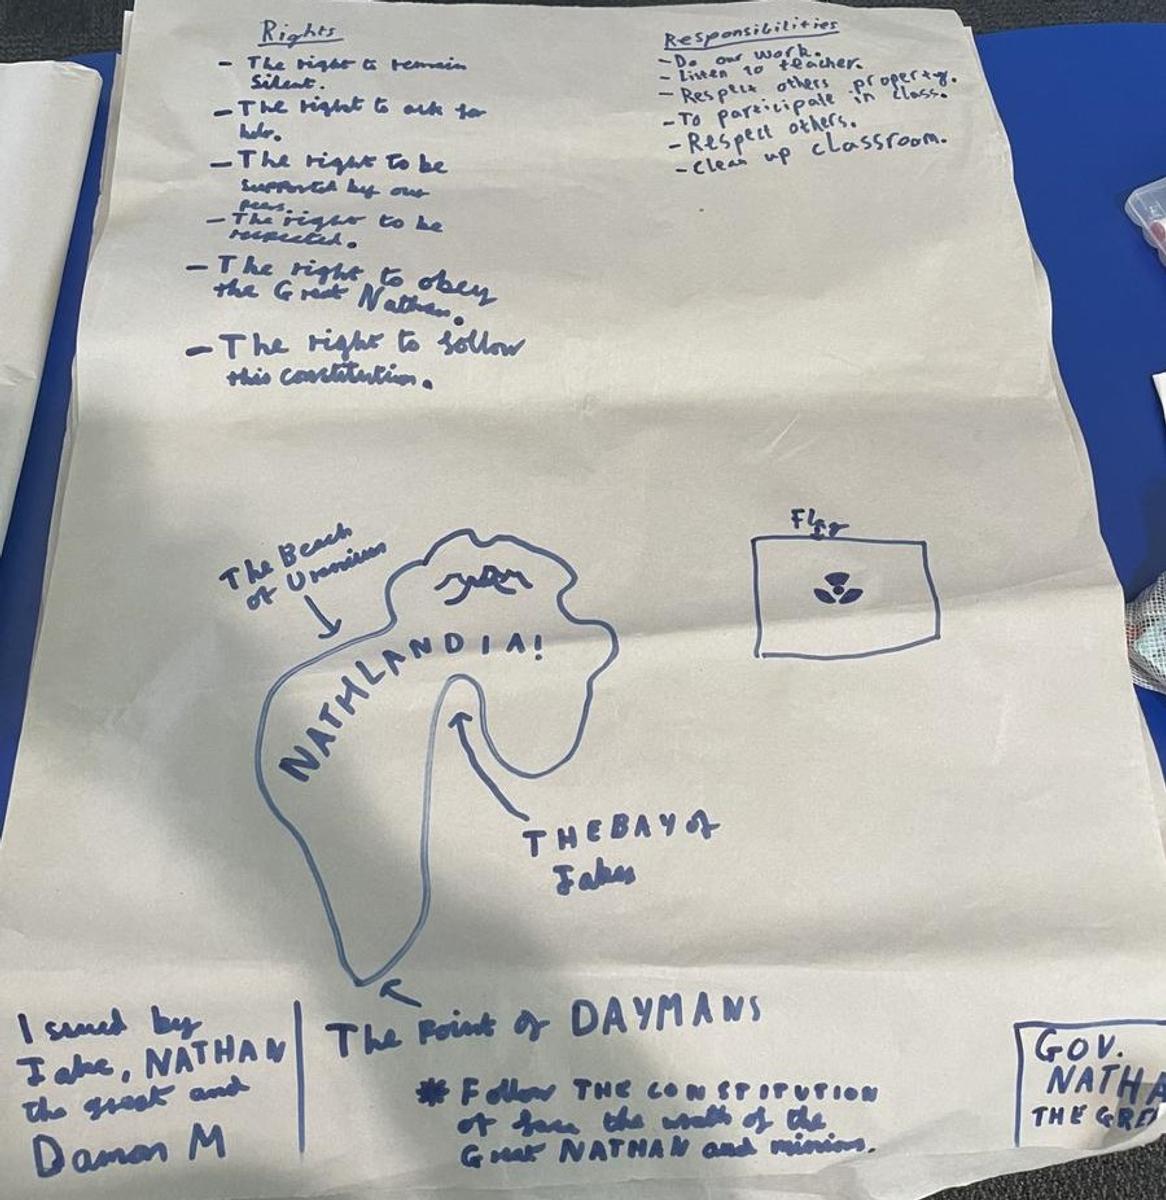 Rights
- The right to remain
Silent.
- The right to ask for
- The right to be
supported by our
peers.
- The right to be
respected.
- The right to obey
the Great Nathan.
- The right to follow
this constitution.
Responsibilities
- Do our work.
- Listen to teacher.
- Respect others property.
- To participate in class.
- Respect others.
- Clean up classroom.
The Beach
of Uranium
NATHLANDIA!
Flag
THE BAY of
Jakes
The Point of DAYMANS
Issued by
Jake, NATHAN
the great and
Daman M
* Follow THE CONSTITUTION
of the
Great NATHAN and minins.
GOV.
NATHA
THE GRE